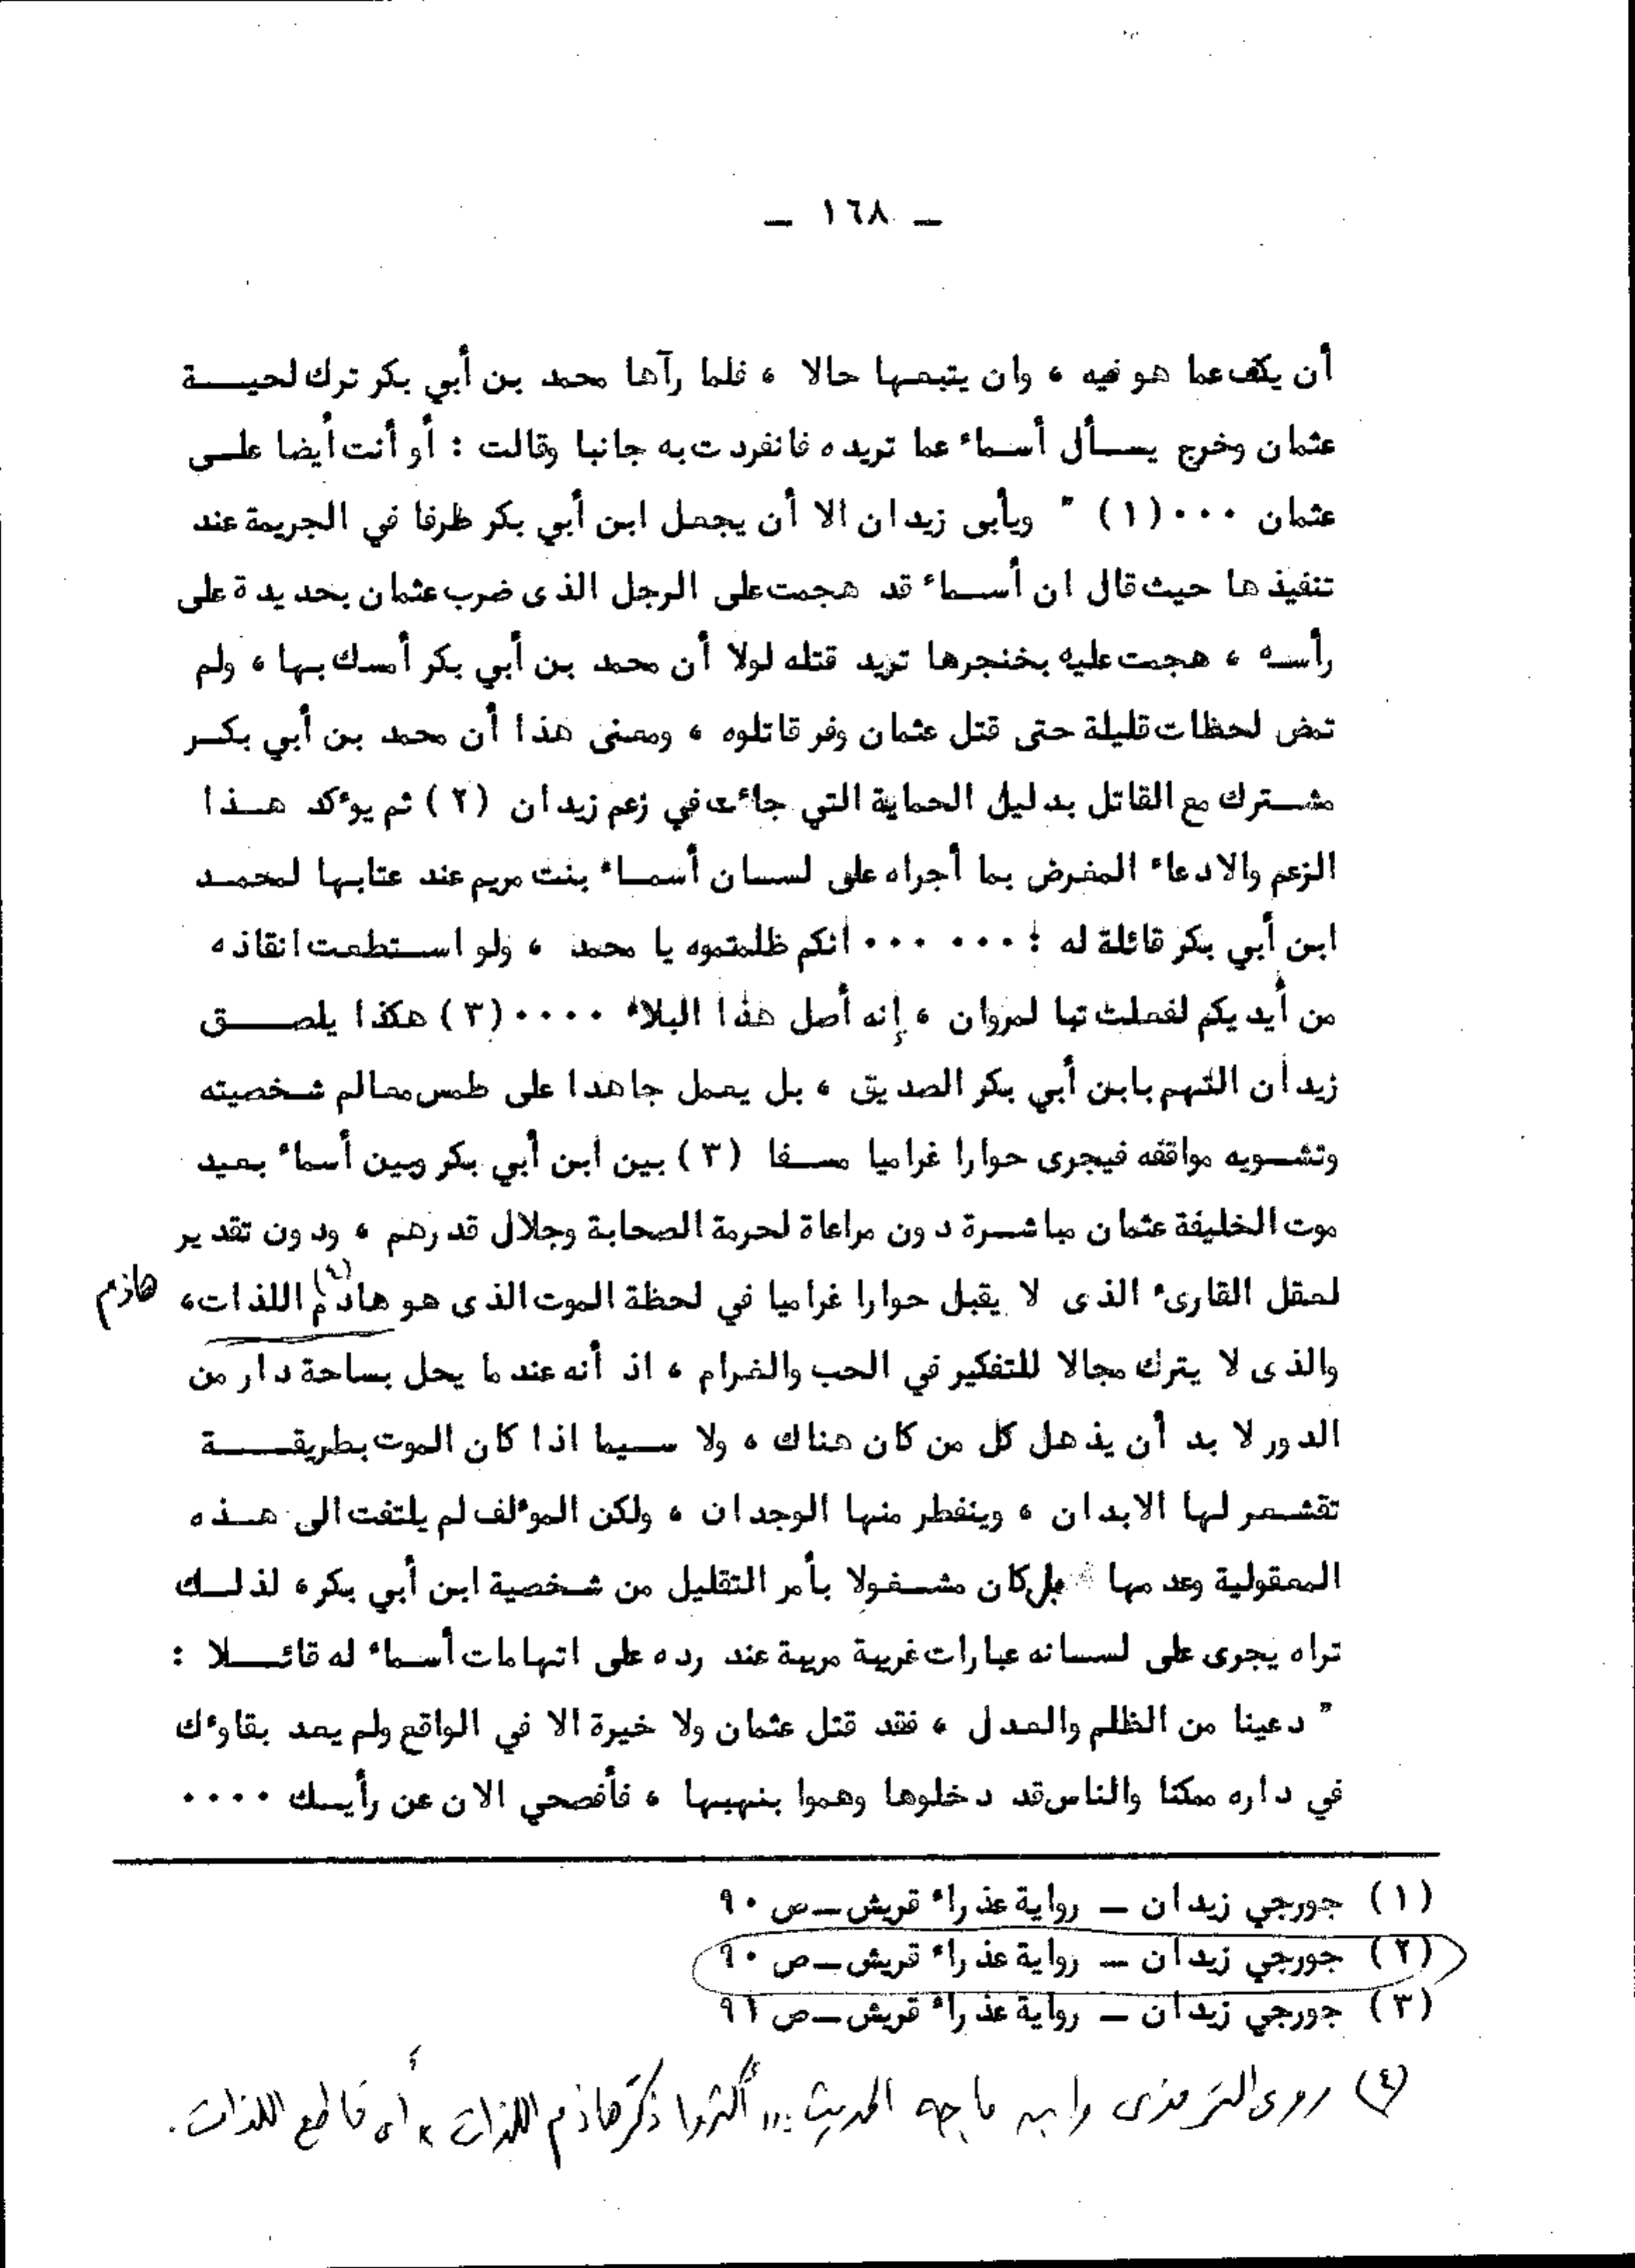 ـ ١٦٨ ـ
أن يكف عما هو فيه ، وان يتبعها حالا ، فلما رآها محمد بن أبي بكر ترك لحيــــة
عثمان وخرج يســأل أسماء عما تريده فانفردت به جانبا وقالت : أو أنت أيضا علــى
عثمان ٠٠٠(١) " ويأبى زيدان الا أن يجعل ابن أبي بكر طرفا في الجريمة عند
تنفيذها حيث قال ان أسـماء قد هجمت على الرجل الذى ضرب عثمان بحديدة على
رأسـه ، هجمت عليه بخنجرها تريد قتله لولا أن محمد بن أبي بكر أمسك بها ، ولم
تمض لحظات قليلة حتى قتل عثمان وفر قاتلوه ، ومعنى هذا أن محمد بن أبي بكــر
مشـترك مع القاتل بدليل الحماية التي جاءت في زعم زيدان (٢) ثم يوءكد هــذا
الزعم والادعاء المغرض بما أجراه على لسان أسمـاء بنت مريم عند عتابها لمحمـد
ابن أبي بكر قائلة له : ٠٠٠ ٠٠٠ انكم ظلمتموه يا محمد ، ولو اسـتطعت انقاذه
من أيديكم لفعلت تبا لمروان ، إنه أصل هذا البلاء ٠٠٠٠(٣) هكذا يلصـــــق
زيدان التهم بابن أبي بكر الصديق ، بل يعمل جاهدا على طمس معالم شـخصيته
وتشــويه مواقفه فيجرى حوارا غراميا مسـفا (٣) بين ابن أبي بكر وبين أسماء بعيد
موت الخليفة عثمان مباشـرة دون مراعاة لحرمة الصحابة وجلال قدرهم ، ودون تقدير
لعقل القارىء الذى لا يقبل حوارا غراميا في لحظة الموت الذى هو هادم (٤) اللذات، هاذم
والذى لا يترك مجالا للتفكير في الحب والغرام ، اذ أنه عندما يحل بساحة دار من
الدور لا بد أن يذهل كل من كان هناك ، ولا سـيما اذا كان الموت بطريقـــــة
تقشـعر لها الابدان ، وينفطر منها الوجدان ، ولكن الموءلف لم يلتفت الى هــذه
المعقولية وعدمها بل كان مشـغولا بأمر التقليل من شـخصية ابن أبي بكر، لذلــك
تراه يجرى على لسـانه عبارات غريبة مريبة عند رده على اتهامات أسماء له قائــــلا :
" دعينا من الظلم والعدل ، فقد قتل عثمان ولا خيرة الا في الواقع ولم يعد بقاوءك
في داره ممكنا والناس قد دخلوها وهموا بنهبها ، فأفصحي الان عن رأيـك ٠٠٠٠
(١) جورجي زيدان ـ رواية عذراء قريش ـ ص ٩٠
(٢) جورجي زيدان ـ رواية عذراء قريش ـ ص ٩٠
(٣) جورجي زيدان ـ رواية عذراء قريش ـ ص ٩١
(٤) روى الترمذى وابن ماجه الحديث : " أكثروا ذكر هاذم اللذات " أى قاطع اللذات.